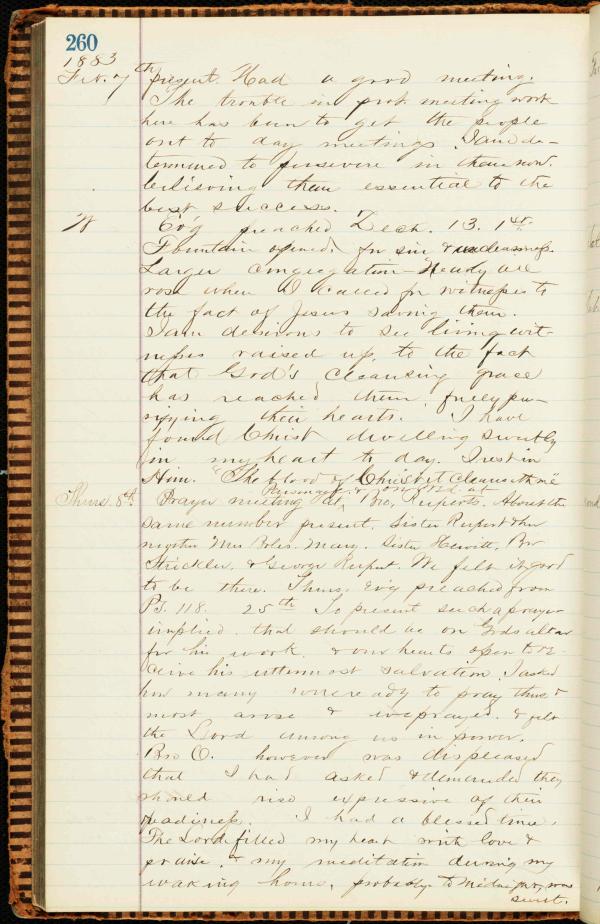 260
1883
Feb. 7th present. Had a good meeting.
The trouble in prot. meeting work
here has been to get the people
out to day meetings. I am de-
termined to persevere in them now.
beliiving them essential to the
best success.
W Ev'g preached Zech. 13. 1st.
Fountain opened for sin & uncleanness.
Larger congregation – Nearly all
rose when I called for witnesses to
the fact of Jesus saving them.
I am desirous to see living wit-
nesses raised up, to the fact
that God's cleansing grace
has reached them, freely pu-
rifying their hearts. I have
found Christ dwelling sweetly
in my heart to day. I rest in
Him. "The blood of Christ it cleanseth me"
Thurs. 8th. Prayer meeting at Bro. Ruperts. About the
same number present. Sister Rupert & her
mother Mrs Mary. Sister Hewitt, Bro
Strickler, & George Rupert. We felt it good
to be there. Thurs. Ev'g preached from
Ps. 118. 25th To present such a prayer
implied that should be on Gods altar
for his work. & our hearts open to re-
ceive his uttermost salvation. I asked
how many were ready to pray thus &
most arose & we prayed. & felt
the Lord among us in power.
Bro O. however was displeased
that I had asked & demanded they
should rise expressive of their
readiness. I had a blessed time.
The Lord filled my heart with love &
praise, & my meditation during my
waking hours, probably to was
sweet.